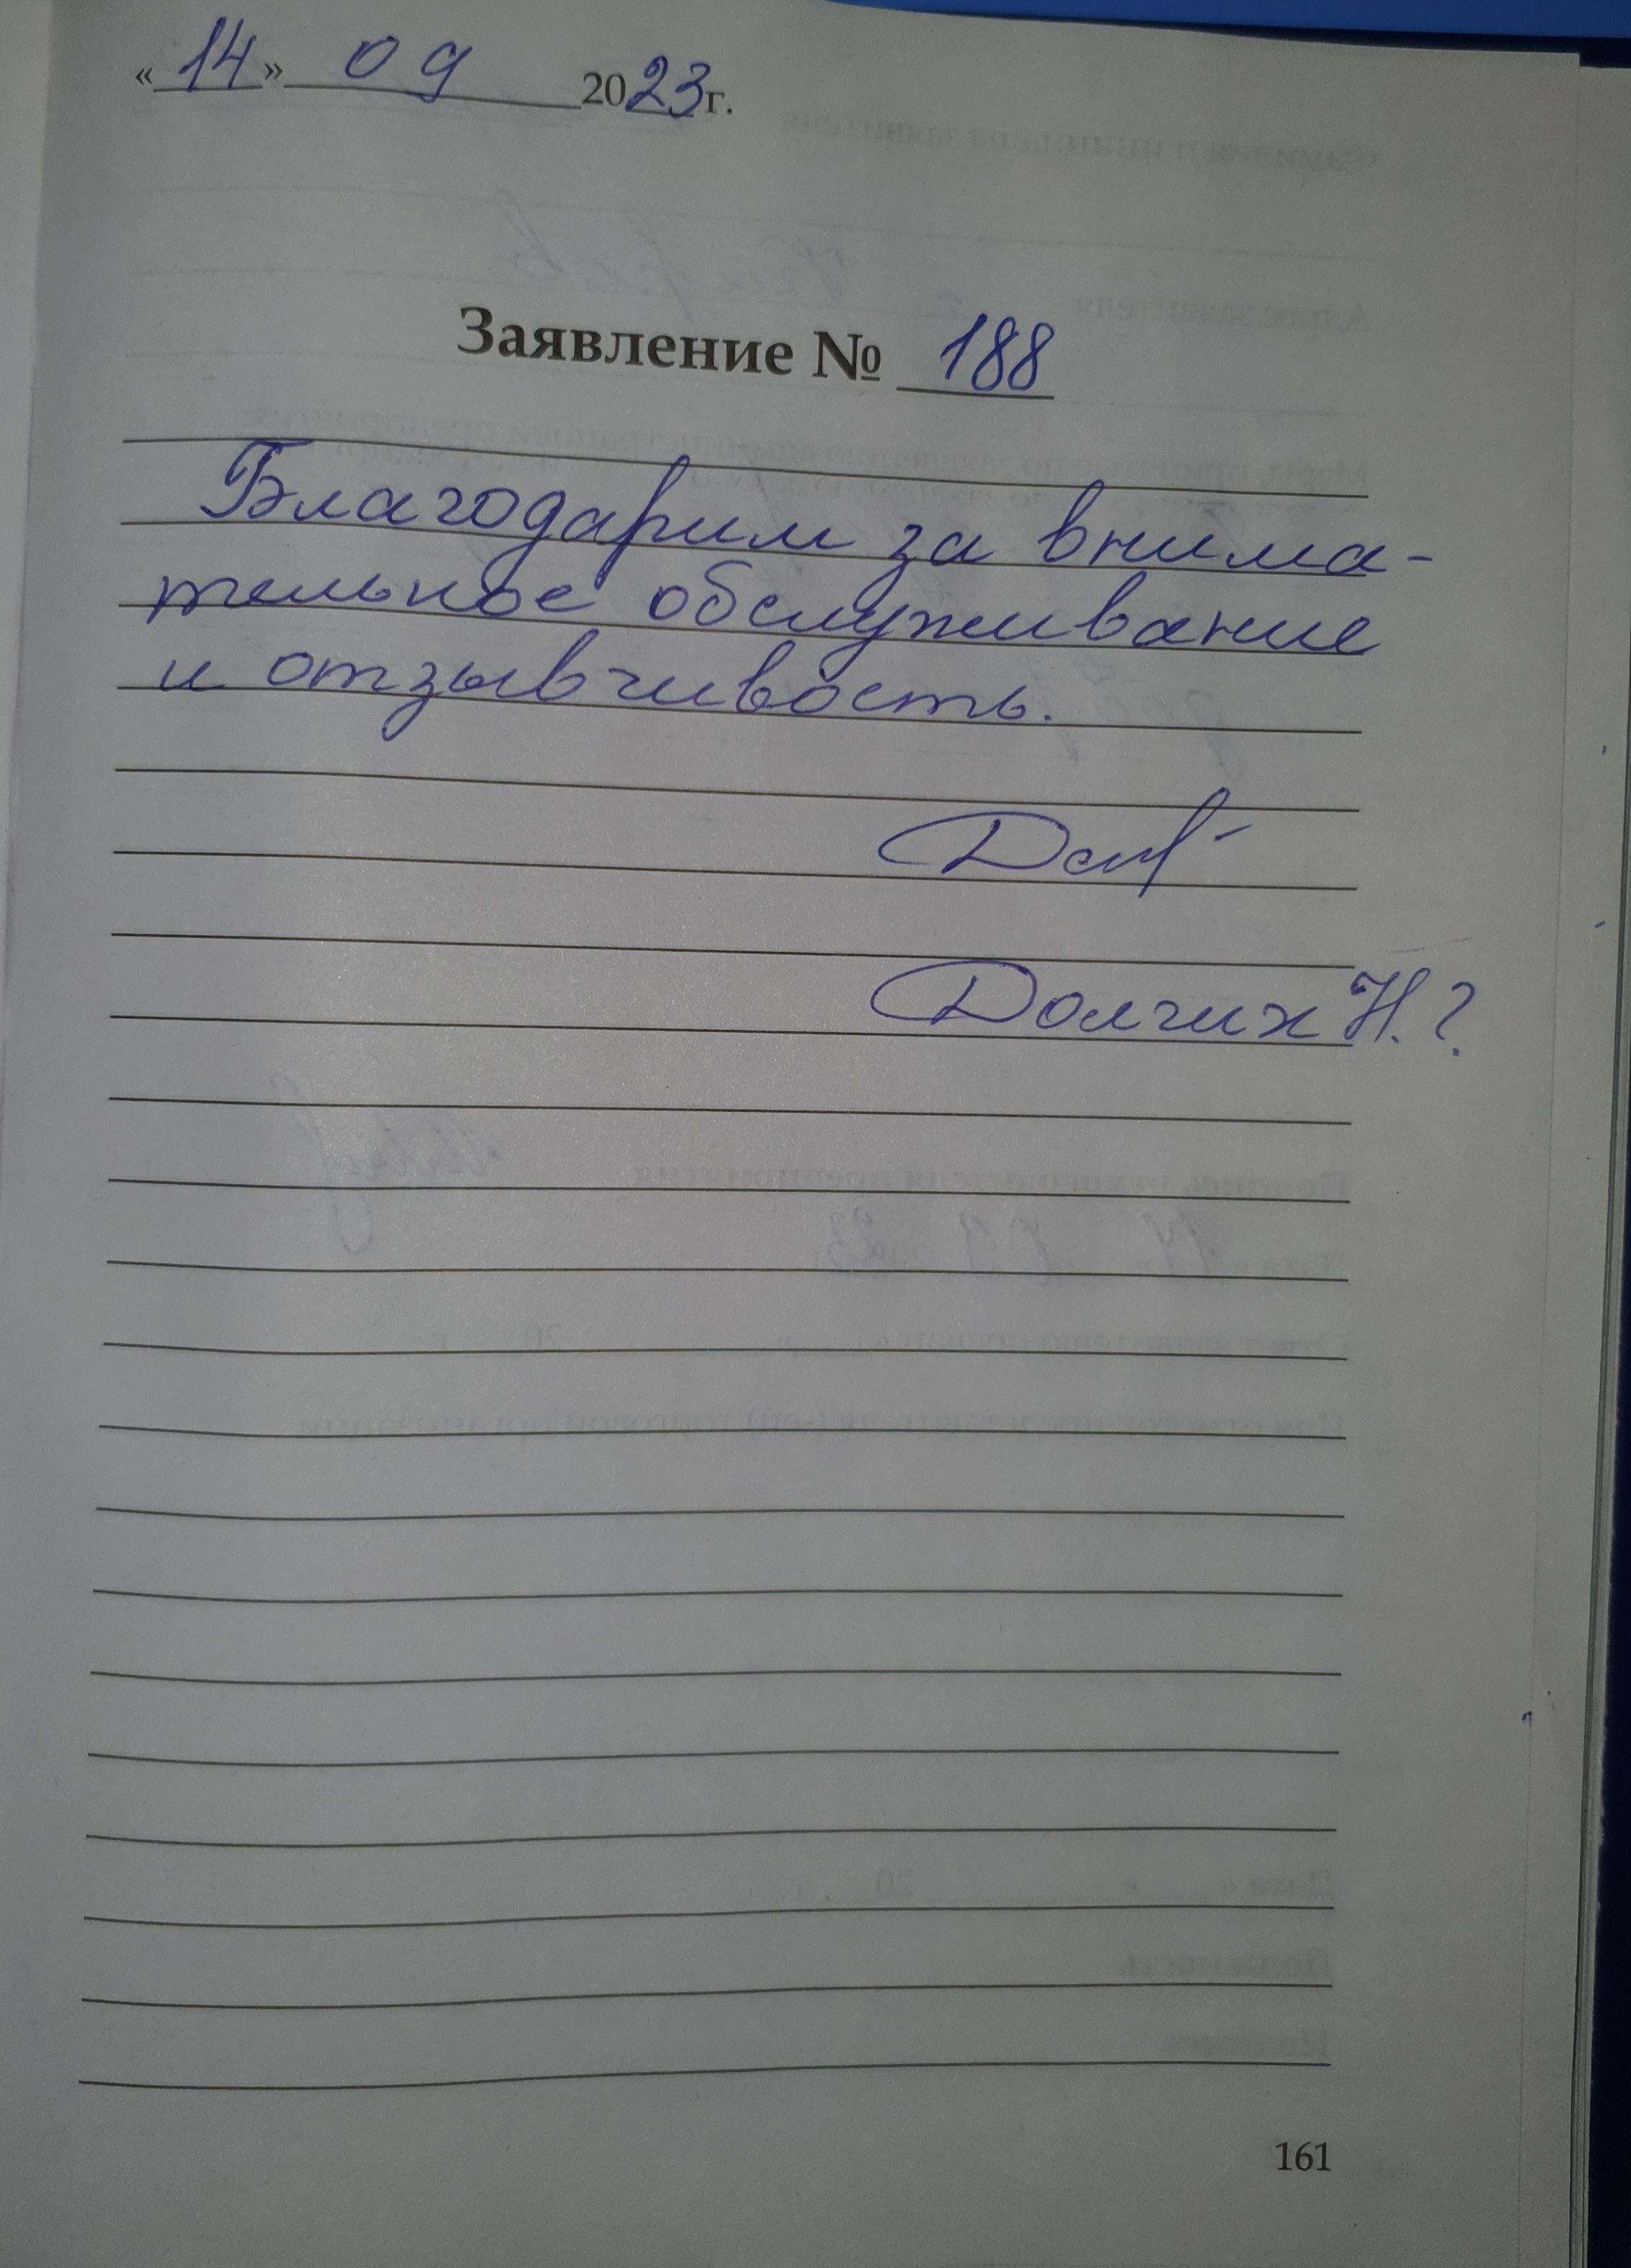 «14» 09 2023г.
Заявление № 188
Благодарим за внима-
тельное обслуживание
и отзывчивость.
Долгих Н.
161